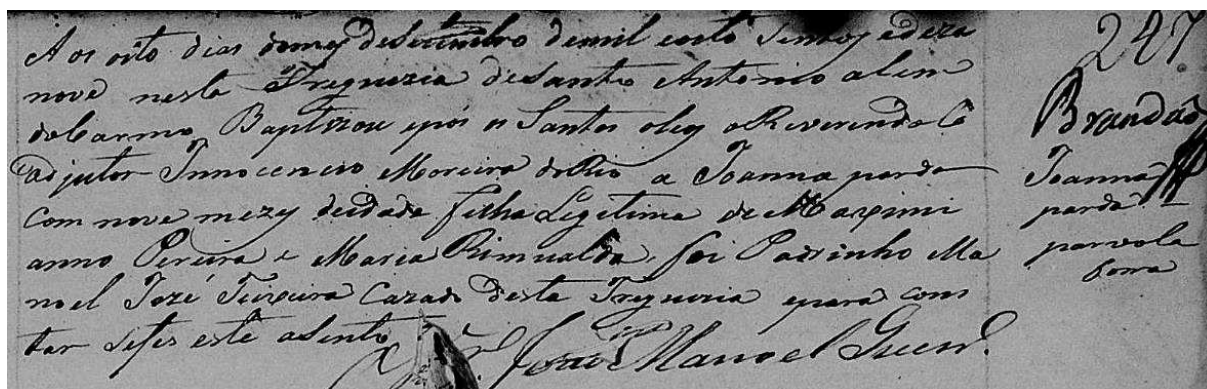 Aos oito dias do mez de Setembro de mil e oito Sentoz e deza
nove nesta Freguezia de Santo Antonio alem
do Carmo, Baptizou e pos os Santos oleoz o Reverendo Co
adjutor Innocencio Moreira do Rio a Joanna parda
com nove mezez de idade filha Legitima de Maximi
anno Pereira e Maria Rimualda, foi Padrinho Ma
noel Jozé Teixeira Cazado desta Freguezia e para cons
tar se fes este asento
Manoel
247
Brandão
Joanna
parda
parvola
forra